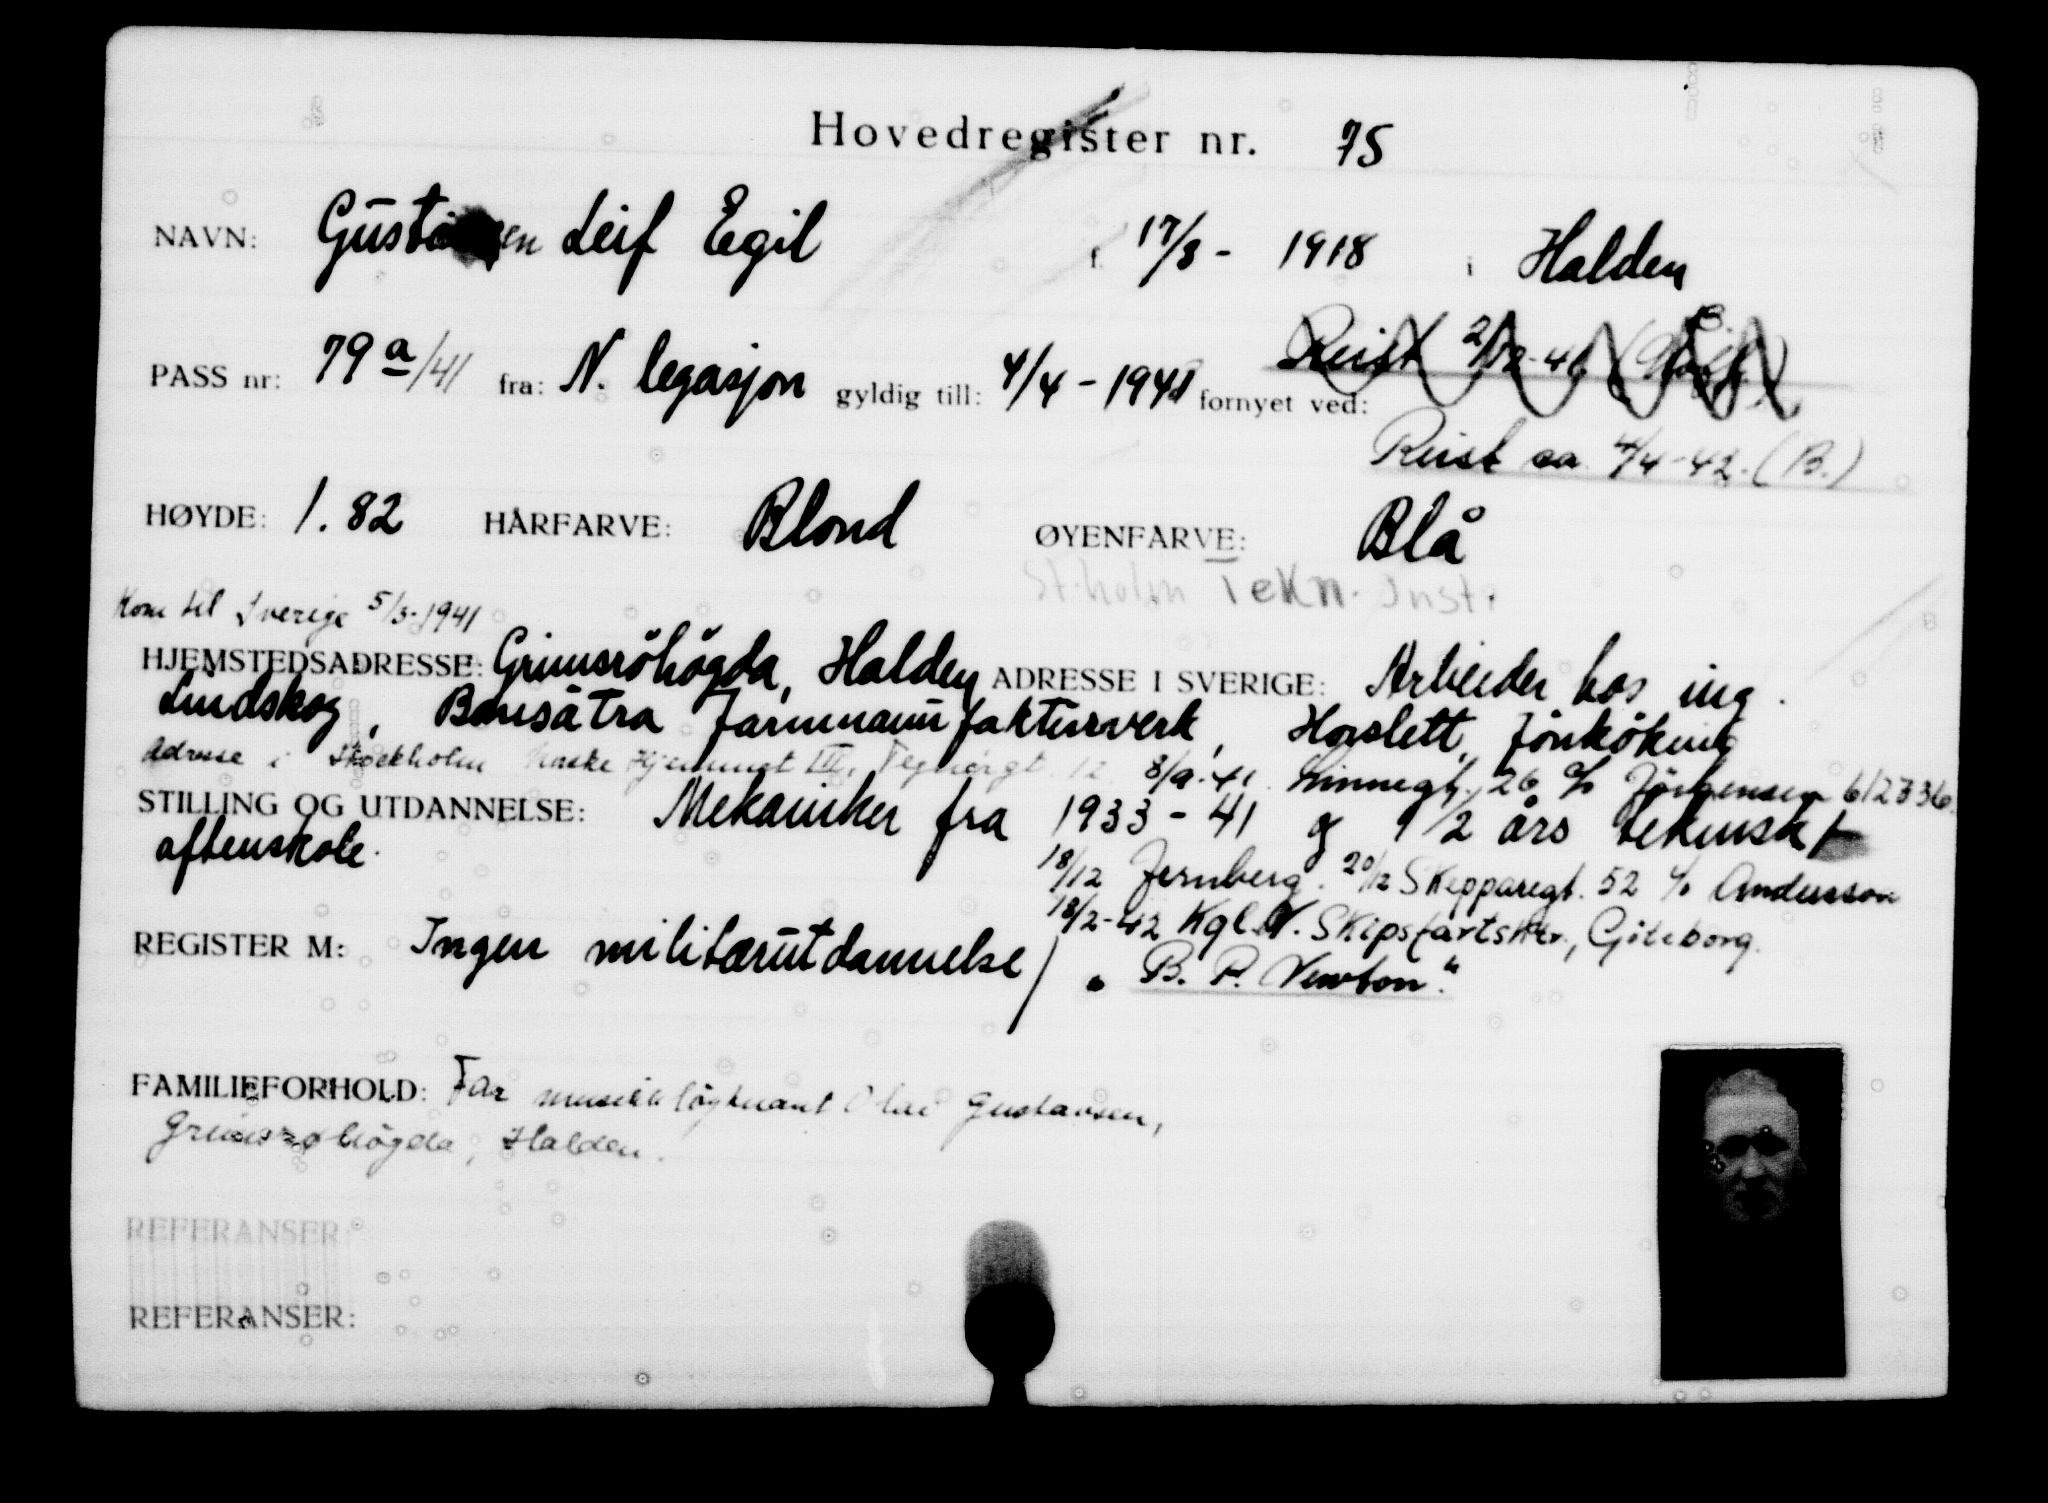 Hovedregister nr. 75
NAVN: Gustavsen Leif Egil f. 17/8 - 1918 i Halden
Reist
PASS nr: 79 a/41 fra: N. legasjon gyldig till: 4/4 - 1941 fornyet ved:
Reist ca 4/4-42. (B.)
HØYDE: 1.82 HÅRFARVE: Blond ØYENFARVE: Blå
St.holm Tekn. Inst.
Kom til Sverige 5/3-1941
HJEMSTEDSADRESSE: Grimsröhögda, Halden ADRESSE I SVERIGE: Arbeider hos ing.
Lindskog, Jarnmanufakturverk, Jönköking
Adresse i Stockholm Norske Hjemmet III, 12. 8/9.41. Linnegt. 26 c/o Jörgensen 612336.
STILLING OG UTDANNELSE: Mekaniker fra 1933 - 41 og 1 1/2 års teknisk
aftenskole.
18/12 Jernberg. 20/12 Skepparegt. 52 c/o Andersson
18/2-42 Kgl. N. Skipsfartsktr., Göteborg.
REGISTER M: Ingen militærutdannelse / „B. P. Newton“.
FAMILIEFORHOLD: Far musikkløytnant Olai Gustavsen,
Grimsrøhögda, Halden.
REFERANSER
REFERANSER: